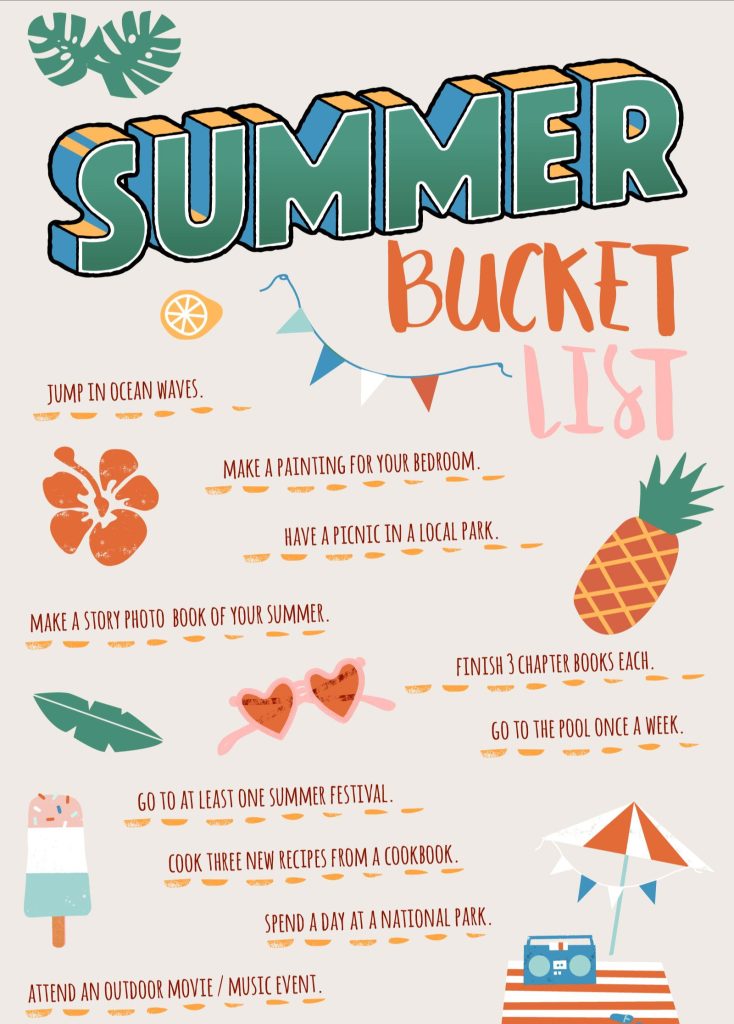 SUMMER
BUCKET
LIST
JUMP IN OCEAN WAVES.
MAKE A PAINTING FOR YOUR BEDROOM.
HAVE A PICNIC IN A LOCAL PARK.
MAKE A STORY PHOTO BOOK OF YOUR SUMMER.
FINISH 3 CHAPTER BOOKS EACH.
GO TO THE POOL ONCE A WEEK.
GO TO AT LEAST ONE SUMMER FESTIVAL.
COOK THREE NEW RECIPES FROM A COOKBOOK.
SPEND A DAY AT A NATIONAL PARK.
ATTEND AN OUTDOOR MOVIE / MUSIC EVENT.